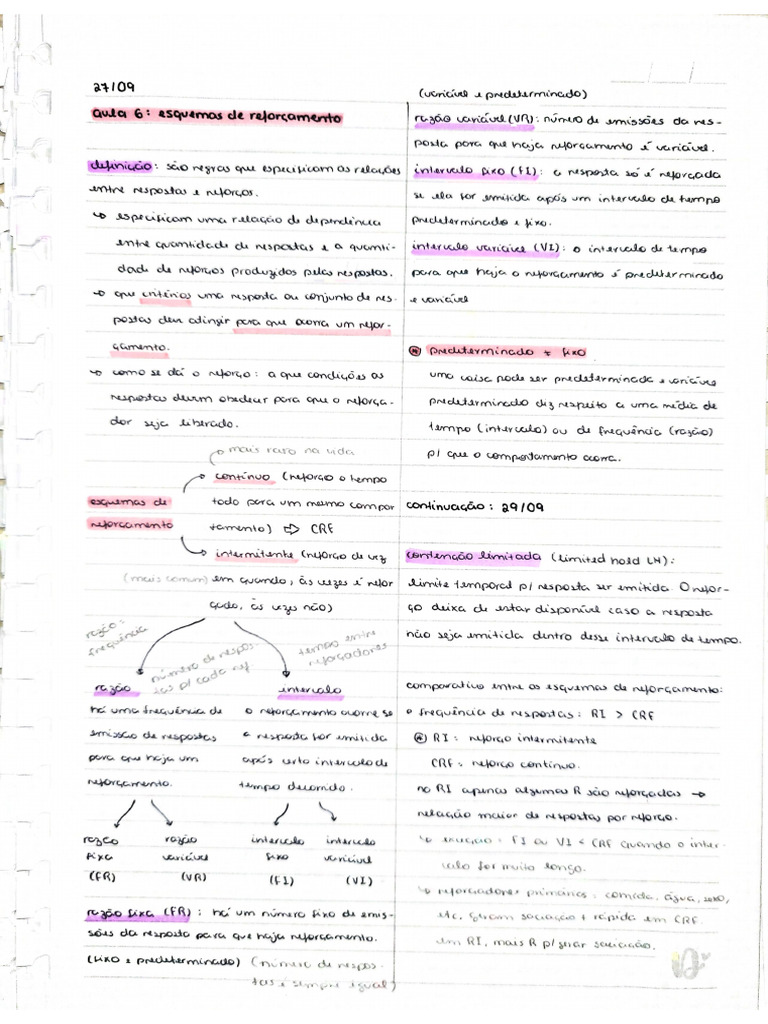 27/09
Aula 6: esquemas de reforçamento
definição: são regras que especificam as relações
entre respostas e reforços.
↳ especificam uma relação de dependência
entre quantidade de respostas e a quanti-
dade de reforços produzidos pelas respostas.
↳ que critérios uma resposta ou conjunto de res-
postas deve atingir para que ocorra um refor-
çamento.
↳ como se dá o reforço: a que condições as
respostas devem obedecer para que o reforça-
dor seja liberado.
mais raro na vida
contínuo (reforço o tempo
esquemas de
reforçamento
todo para um mesmo compor
tamento) ⇨ CRF
intermitente (reforço de vez
(mais comum) em quando, às vezes é refor
çado, às vezes não)
razão:
frequência
número de respos-
tas p/ cada ref
tempo entre
reforçadores
razão
há uma frequência de
emissão de respostas
para que haja um
reforçamento.
intervalo
o reforçamento ocorre se
a resposta for emitida
após certo intervalo de
tempo decorrido.
razão fixa (FR)
razão variável (VR)
intervalo fixo (FI)
intervalo variável (VI)
razão fixa (FR): há um número fixo de emis-
sões da resposta para que haja reforçamento.
(fixo e predeterminado) (número de respos-
tas é sempre igual)
(variável e predeterminado)
razão variável (VR): número de emissões da res-
posta para que haja reforçamento é variável.
intervalo fixo (FI): a resposta só é reforçada
se ela for emitida após um intervalo de tempo
predeterminado e fixo.
intervalo variável (VI): o intervalo de tempo
para que haja o reforçamento é predeterminado
e variável
* predeterminado ≠ fixo
uma coisa pode ser predeterminada e variável
predeterminado diz respeito a uma média de
tempo (intervalo) ou de frequência (razão)
p/ que o comportamento ocorra.
continuação: 29/09
contenção limitada (limited hold LH):
limite temporal p/ resposta ser emitida. O refor-
ço deixa de estar disponível caso a resposta
não seja emitida dentro desse intervalo de tempo.
comparativo entre os esquemas de reforçamento:
• frequência de respostas: RI > CRF
* RI: reforço intermitente
CRF: reforço contínuo.
no RI apenas algumas R são reforçadas →
relação maior de respostas por reforço.
↳ exceção: FI ou VI < CRF quando o inter-
valo for muito longo.
↳ reforçadores primários: comida, água, sexo,
etc, geram saciação + rápida em CRF.
em RI, mais R p/ gerar saciação.